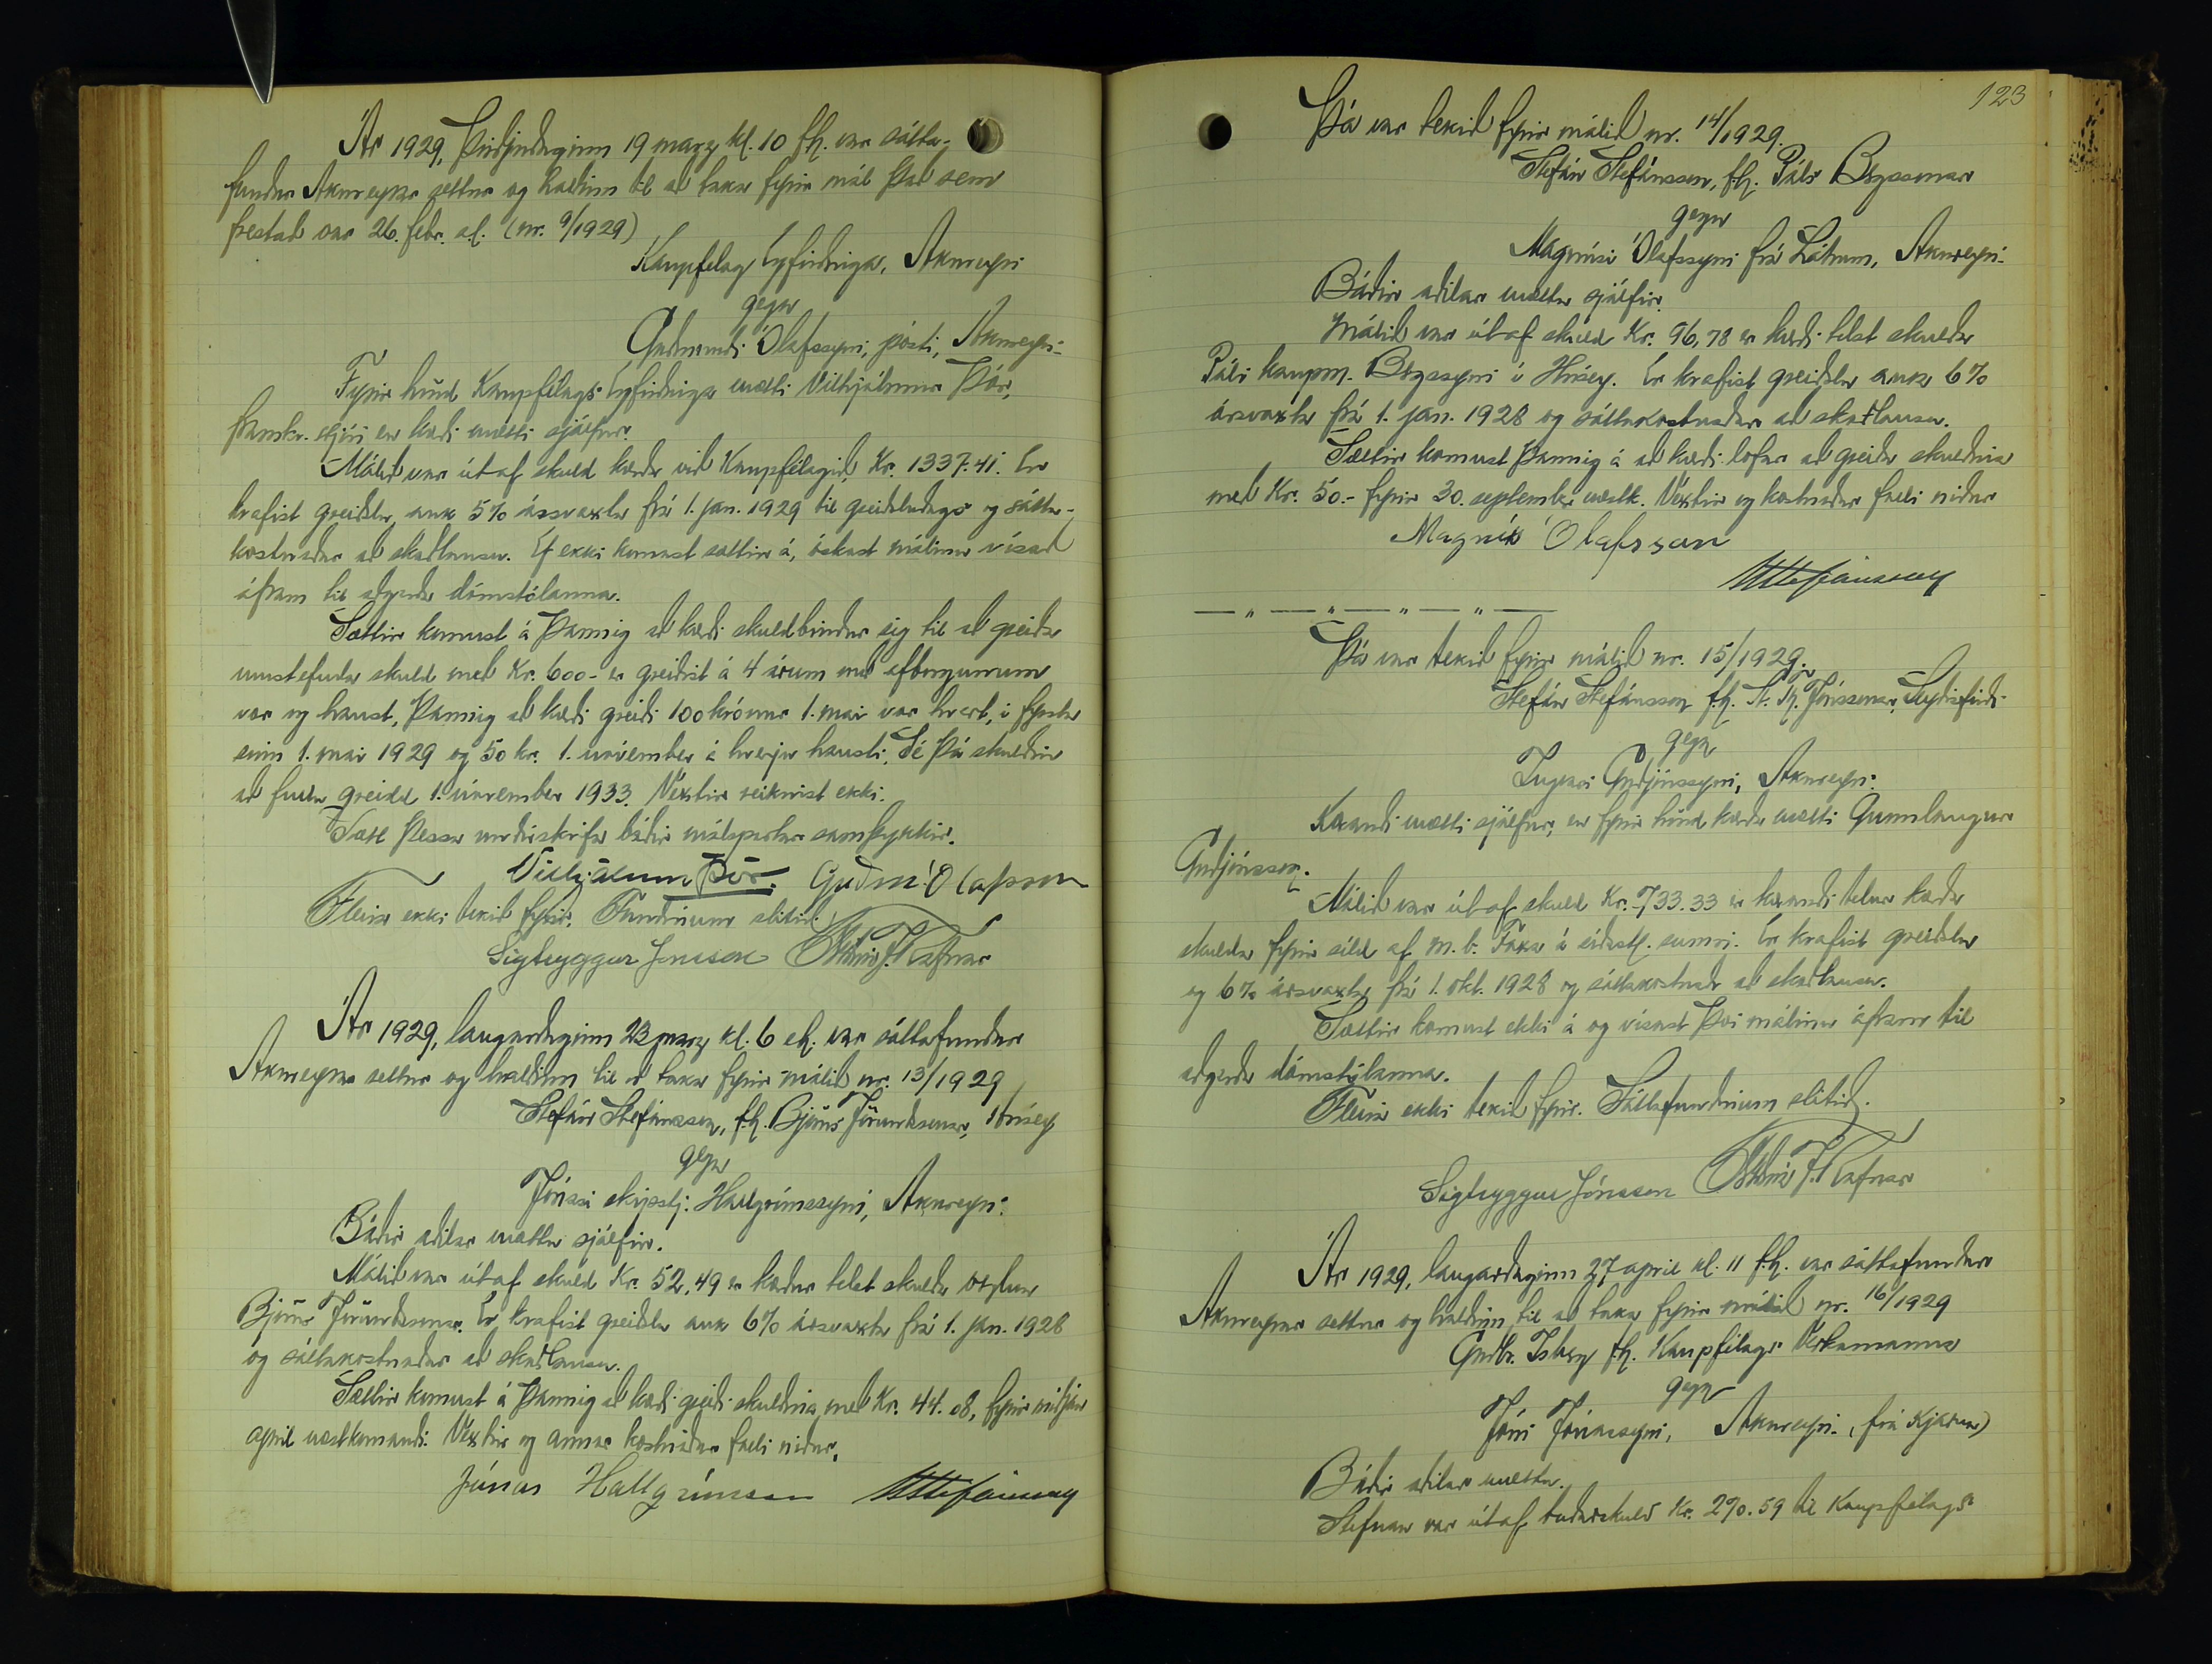 Ár 1929, Þriðjudaginn 19 marz kl. 10 fh. var sátta-
fundur Akureyrar settur og haldinn til að taka fyrir mál það sem
frestað var 26. febr. sl. (nr. 9/1929)
Kaupfelag Eyfirðinga, Akureyri
gegn
Guðmundi Ólafssyni, pósti, Akureyri.
Fyrir hönd Kaupfélags Eyfirðinga mætti Vilhjálmur Þór,
framkv. stjóri en kærði mætti sjálfur.
Málið var útaf skuld kærða við Kaupfélagið, Kr. 1337.41. Er
krafist greiðslu, auk 5% ársvaxta frá 1. jan. 1929 til greiðsludags og sátta-
kostnaðar að skaðlausu. Ef ekki komast sættir á, óskast málinu vísað
áfram til aðgerða dómstólanna.
Sættir komust á þannig að kærði skuldbindur sig til að greiða
umstefnda skuld með Kr. 600- er greiðist á 4 árum með afborgunum
vor og haust, þannig að kærði greiði 100 krónur 1. mai vor hvert, í fyrsta
sinn 1. mai 1929 og 50 kr. 1. nóvember á hverju hausti, sé þá skuldin
að fullu greidd 1. nóvember 1933. Vextir reiknist ekki.
Sætt þessa undirskrifa báðir málspartar samþykkir.
Vilhjálmur Þór. Guðm. Ólafsson
Fleira ekki tekið fyrir. Fundinum slitið.
Sigtryggur Jónsson
Ár 1929, laugardaginn 23 marz kl. 6 eh. var sáttafundur
Akureyrar settur og haldinn til að taka fyrir málið nr. 13/1929
Stefán Stefánsson, fh. Björns Jörundssonar, Hrísey
gegn
Jónasi skipstj. Hallgrímssyni, Akureyri.
Báðir aðilar mættu sjálfir.
Málið var útaf skuld Kr. 52,49 er kærður telst skulda verslun
Björns Jörundssonar. Er krafist greiðslu auk 6% ársvaxta frá 1. jan. 1928
og sáttakostnaðar að skaðlausu.
Sættir komust á þannig að kærði greiði skuldina með Kr. 44.08, fyrir miðjan
apríl næstkomandi. Vextir og annar kostnaður falli niður.
Jónas Hallgrímsson StStefánsson
123
Þá var tekið fyrir málið nr. 14/1929.
Stefán Stefánsson, fh. Páls Bergssonar
gegn
Magnúsi Ólafssyni frá Látrum, Akureyri.
Báðir aðilar mættu sjálfir.
Málið var útaf skuld Kr. 96,78 er kærði telst skulda
Páli kaupm. Bergssyni í Hrísey. Er krafist greiðslu auk 6%
ársvaxta frá 1. jan. 1928 og sáttakostnaðar að skaðlausu.
Sættir komust þannig á að kærði lofar að greiða skuldina
með Kr. 50.- fyrir 30. september næstk. Vextir og kostnaður falli niður
Magnús Ólafsson
StStefánsson
— „ — „ — „ — „ —
Þá var tekið fyrir málið nr. 15/1929.
Stefán Stefánsson fh. St. Th. Jónssonar, Seyðisfirði
gegn
Ingvari Guðjónssyni, Akureyri.
Kærandi mætti sjálfur, en fyrir hönd kærða mætti Gunnlaugur
Guðjónsson.
Málið var útaf skuld Kr. 733.33 er kærandi telur kærða
skulda fyrir síld af m.b. Faxa á síðastl. sumri. Er krafist greiðslu
og 6% ársvaxta frá 1. okt. 1928 og sáttakostnaðr að skaðlausu.
Sættir komust ekki á og vísast því málinu áfram til
aðgerða dómstólanna.
Fleira ekki tekið fyrir. Sáttafundinum slitið.
Sigtryggur Jónsson
Ár 1929, laugardaginn 27 apríl kl. 11 fh. var sáttafundur
Akureyrar settur og haldinn til að taka fyrir málið nr. 16/1929
Guðbr. Ísberg fh. Kaupfélags Verkamanna
gegn
Jóni Jónassyni, Akureyri. (frá Kjarna)
Báðir aðilar mættu.
Stefnan var útaf búðarskuld Kr. 290.59 til Kaupfélags